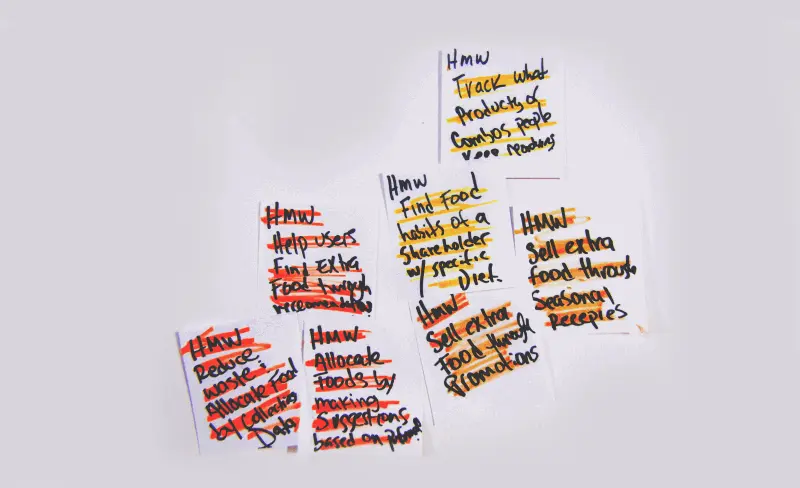 HMW
Track what
Products of
Combos people
Keep
HMW
Find Food
habits of a
Shareholder
w/ specific
Diet.
HMW
Sell extra
food through
Seasonal
Recepies
HMW
Help users
Find Extra
Food through
recommendations
HMW
Sell extra
Food through
Promotions
HMW
Reduce
waste:
Allocate Food
by Collecting
Data
HMW
Allocate
foods by
making
Suggestions
based on